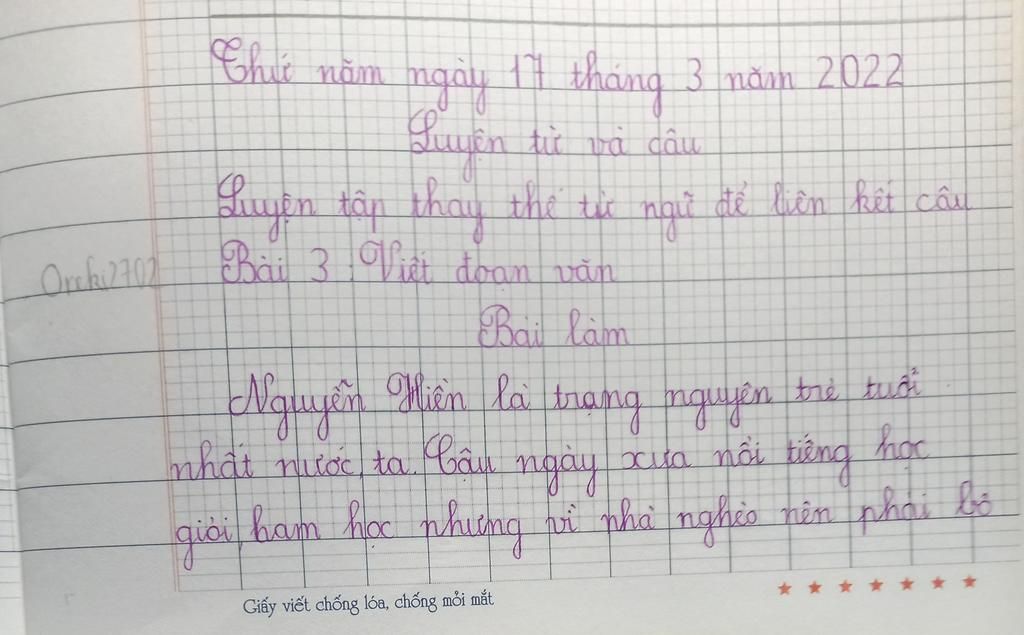 Thứ năm ngày 17 tháng 3 năm 2022
Luyện từ và câu
Luyện tập thay thế từ ngữ để liên kết câu
Orchi2702
Bài 3 : Viết đoạn văn
Bài làm
Nguyễn Hiền là trạng nguyên trẻ tuổi
nhất nước ta. Cậu ngày xưa nổi tiếng học
giỏi, ham học nhưng vì nhà nghèo nên phải bỏ
Giấy viết chống lóa, chống mỏi mắt